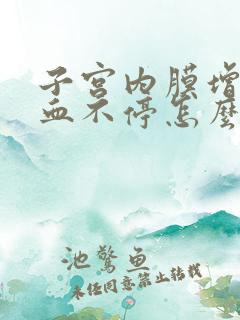 子宫内膜增
血不停怎麽
池驚鱼
未经同意禁止转载